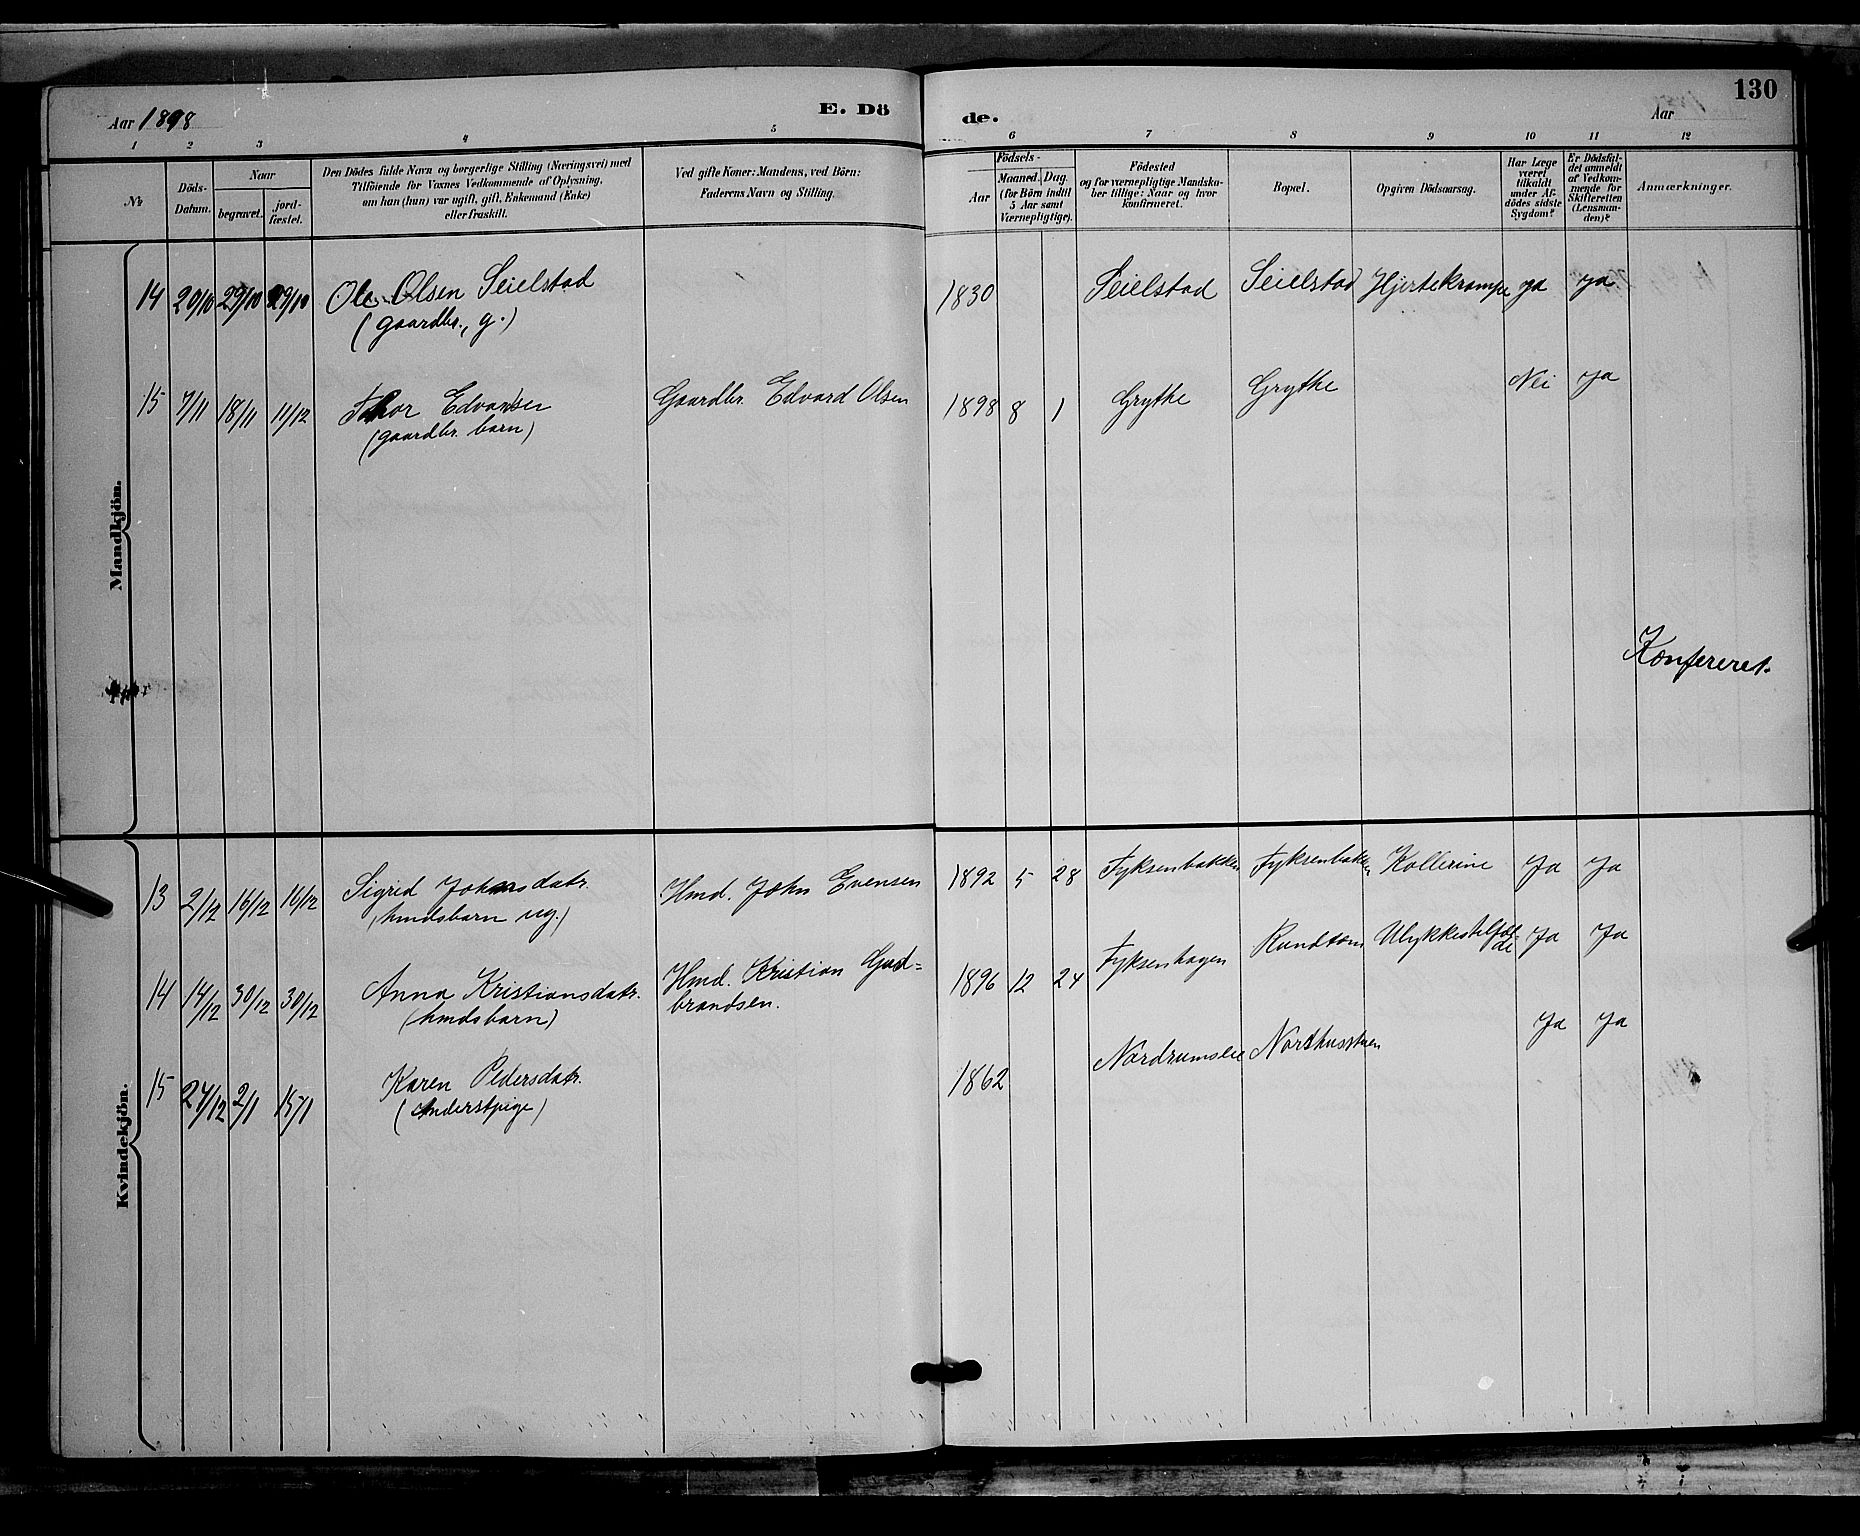 Aar 1898
E. Dö
de.
Aar
130
1 2 3 4 5 6 7 8 9 10 11 12
No
Döds-Datum.
Naar
begravet.
jord-fæstet.
Den Dödes fulde Navn og borgerlige Stilling (Næringsvei) med
Tilföiende for Voxnes Vedkommende af Oplysning,
om han (hun) var ugift, gift, Enkemand (Enke)
eller fraskilt.
Ved gifte Koner: Mandens, ved Börn:
Faderens Navn og Stilling.
Födsels-
Aar
Maaned. Dag.
(for Börn indtil
5 Aar samt
Værnepligtige).
Födested
og for værnepligtige Mandska-
ber tillige: Naar og hvor
konfirmeret.
Bopæl.
Opgiven Dödsaarsag.
Har Læge
været
tilkaldt
under Af-
dödes sidste
Sygdom?
Er Dödsfal-
det anmeldt
af Vedkom-
mende for
Skifteretten
(Lensman-
den)?
Anmærkninger.
Mandkjön.
14 20/10 29/10 29/10 Ole Olsen Seielstad 1830 Seielstad Seielstad Hjertekrampe ja ja
(gaardbr., g.)
15 7/11 18/11 11/12 Thor Edvardsen Gaardbr. Edvard Olsen 1898 8 1 Grythe Grythe Nei ja
(gaardbr. barn)
Konfereret.
Kvindekjön.
13 2/12 16/12 16/12 Sigrid Johnsdatr. Hmd. John Evensen 1892 5 28 Fyksenbakken Fyksenbakken Kollerine Ja Ja
(hmdsbarn ug.)
14 14/12 30/12 30/12 Anna Kristiansdatr. Hmd. Kristian Gud= 1896 12 24 Fyksenhagen Rundtom Ulykkestilfæl-de Ja Ja
(hmdsbarn) brandsen.
15 24/12 2/1 15/1 Karen Pedersdatr. 1862 Nordrumslie Northusstuen Ja Ja
(Inderstpige)